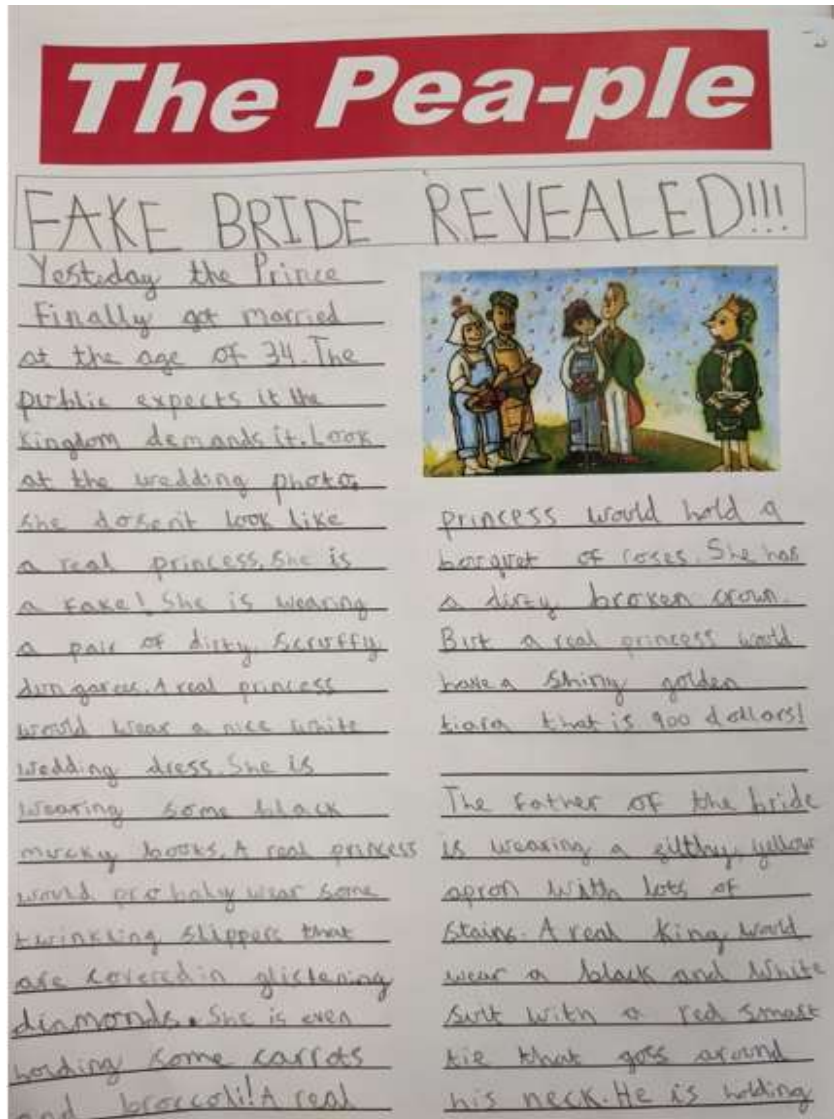 The Pea-ple
FAKE BRIDE REVEALED!!!
Yesterday the Prince
Finally got married
at the age of 34. The
public expects it the
Kingdom demands it. Look
at the wedding photo,
she dosen't look like
a real princess. She is
a fake! She is wearing
a pair of dirty, scruffy
dungarees. A real princess
would wear a nice white
wedding dress. She is
wearing some black
mucky boots. A real princess
would probaly wear some
twinkling slippers that
are covered in glistening
diamonds. She is even
holding some carrots
and broccoli! A real
princess would hold a
borquet of roses. She has
a dirty broken crown.
But a real princess would
have a shiny golden
tiara that is 900 dollars!
The father of the bride
is wearing a filthy, yellow
apron with lots of
stains. A real king would
wear a black and white
suit with a red smart
tie that goes around
his neck. He is holding